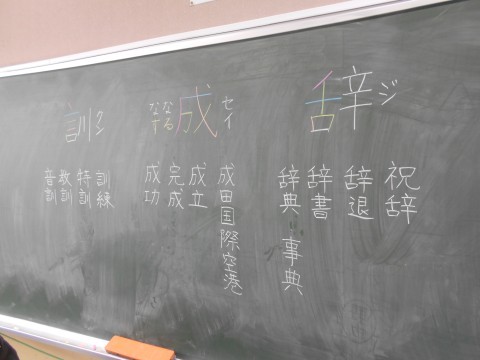 辞ジ
祝辞
辞退
辞書
辞典 事典
成セイ
なる
なす
成田国際空港
成立
完成
成功
訓クン
訓練
特訓
教訓
音訓